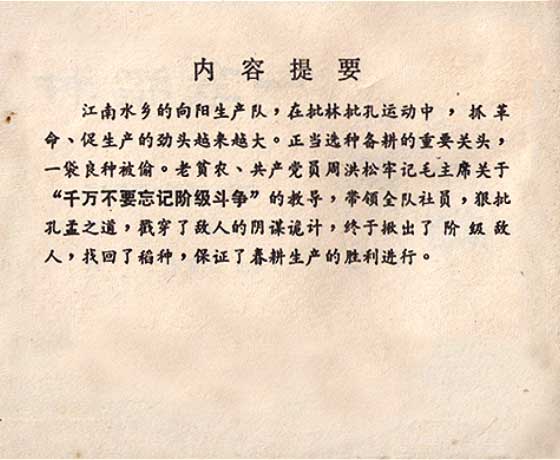 内容提要
江南水乡的向阳生产队，在批林批孔运动中，抓革
命、促生产的劲头越来越大。正当选种备耕的重要关头，
一袋良种被偷。老贫农、共产党员周洪松牢记毛主席关于
“千万不要忘记阶级斗争”的教导，带领全队社员，狠批
孔孟之道，戳穿了敌人的阴谋诡计，终于揪出了阶级敌
人，找回了稻种，保证了春耕生产的胜利进行。